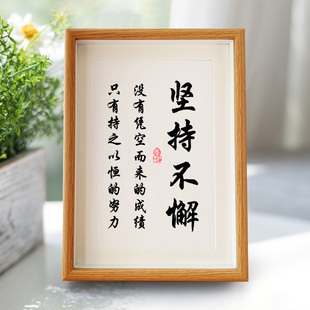 坚持不懈
没有凭空而来的成绩
只有持之以恒的努力